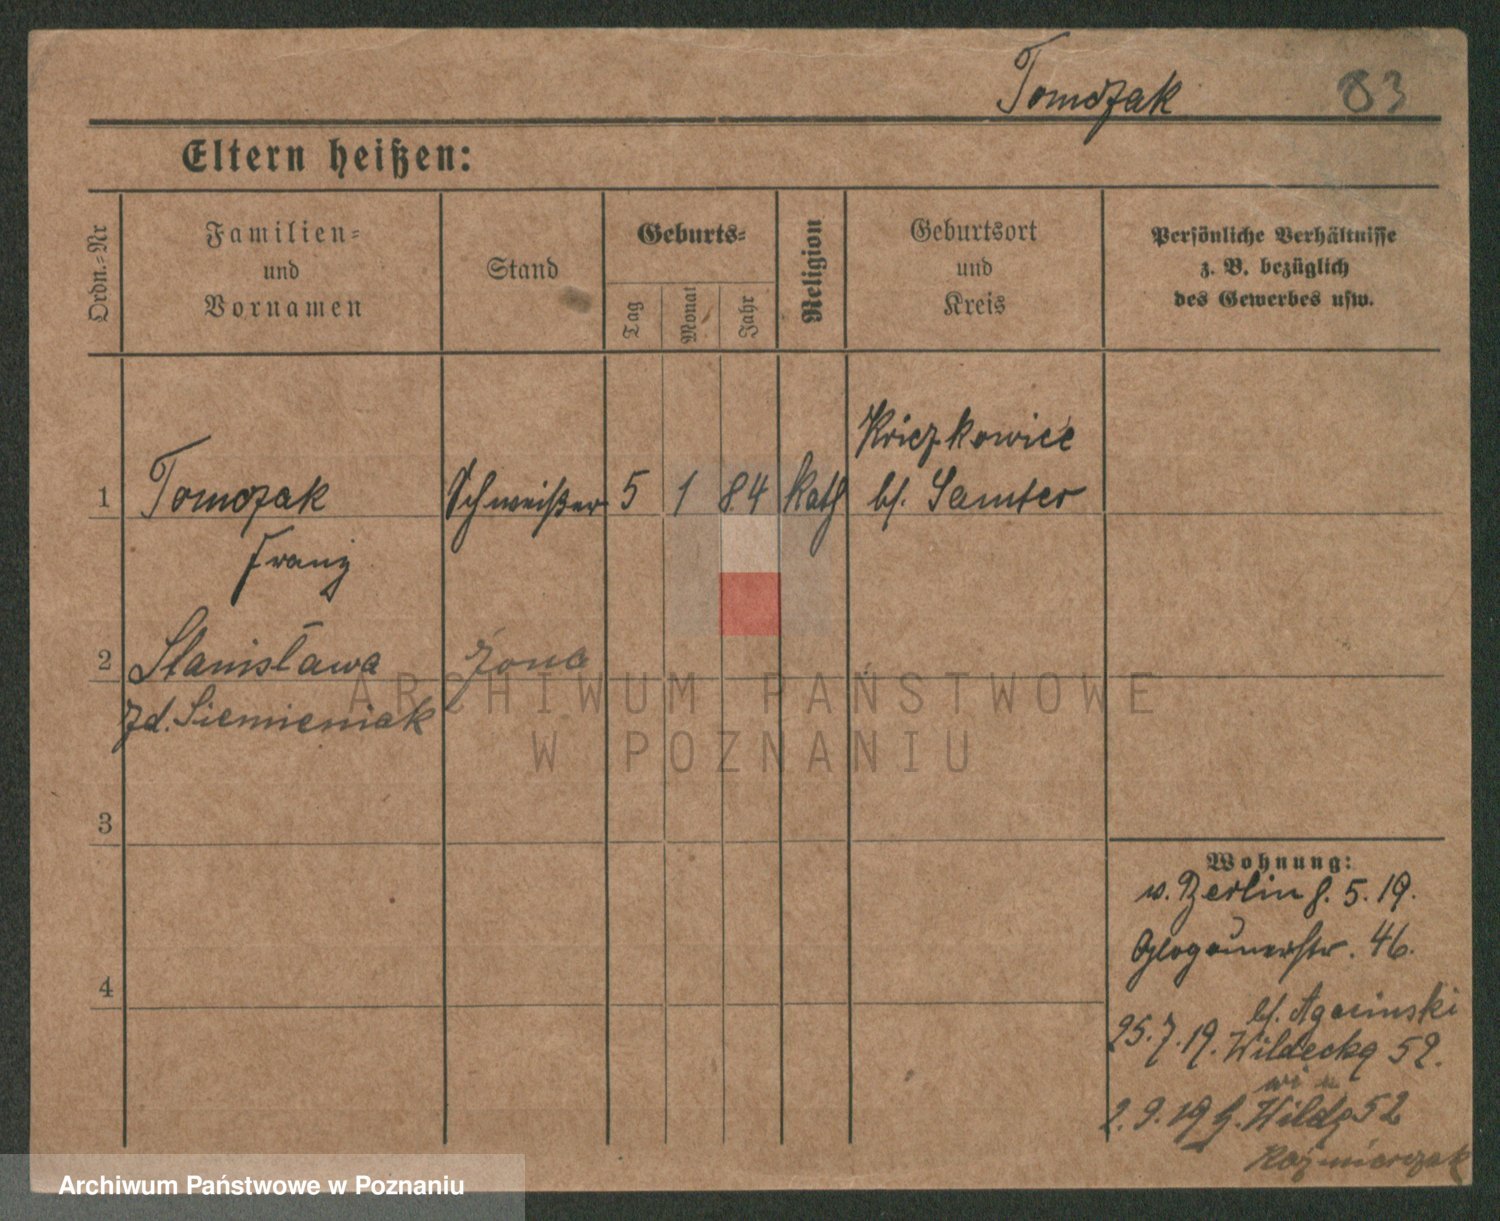 Tomczak 83
Eltern heißen:
Ordn.-Nr
Familien-
und
Vornamen
Stand
Geburts-
Tag
Monat
Jahr
Religion
Geburtsort
und
Kreis
Persönliche Verhältnisse
z. B. bezüglich
des Gewerbes usw.
1 Tomczak Schweißer 5 1 84 kath
bf. Samter
Franz
2 Stanisława żona
zd. Siemieniak
ARCHIWUM PAŃSTWOWE
W POZNANIU
3
4
Wohnung:
v. Berlin 8. 5. 19.
Glogauerstr. 46.
25. 7. 19. 52.
2. 9. 19 52
Kaźmierczak
Archiwum Państwowe w Poznaniu